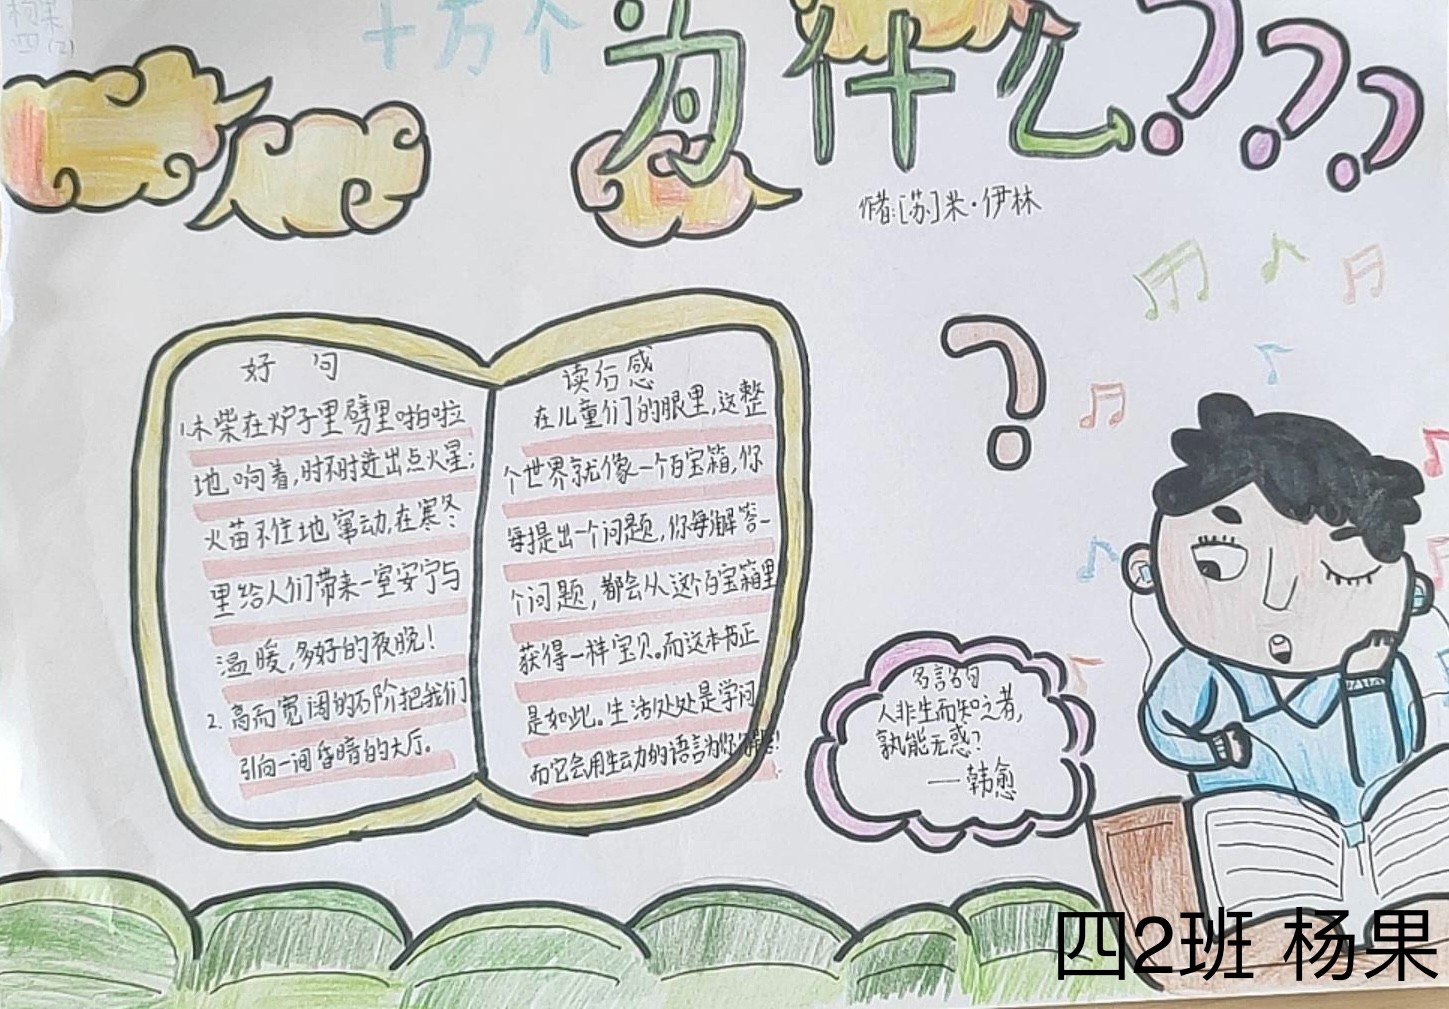 杨果
四(2)
十万个
为什么???
作者:[苏]米·伊林
好 句
1.木柴在炉子里劈里啪啦
地响着,时不时迸出点火星;
火苗不住地窜动,在寒冬
里给人们带来一室安宁与
温暖,多好的夜晚!
2.高而宽阔的石阶把我们
引向一间昏暗的大厅。
读后感
在儿童们的眼里,这整
个世界就像一个百宝箱,你
每提出一个问题,你每解答一
个问题,都会从这个百宝箱里
获得一样宝贝。而这本书正
是如此。生活处处是学问
而它会用生动的语言为你解答!
?
名言名句
人非生而知之者,
孰能无惑?
——韩愈
四2班 杨果